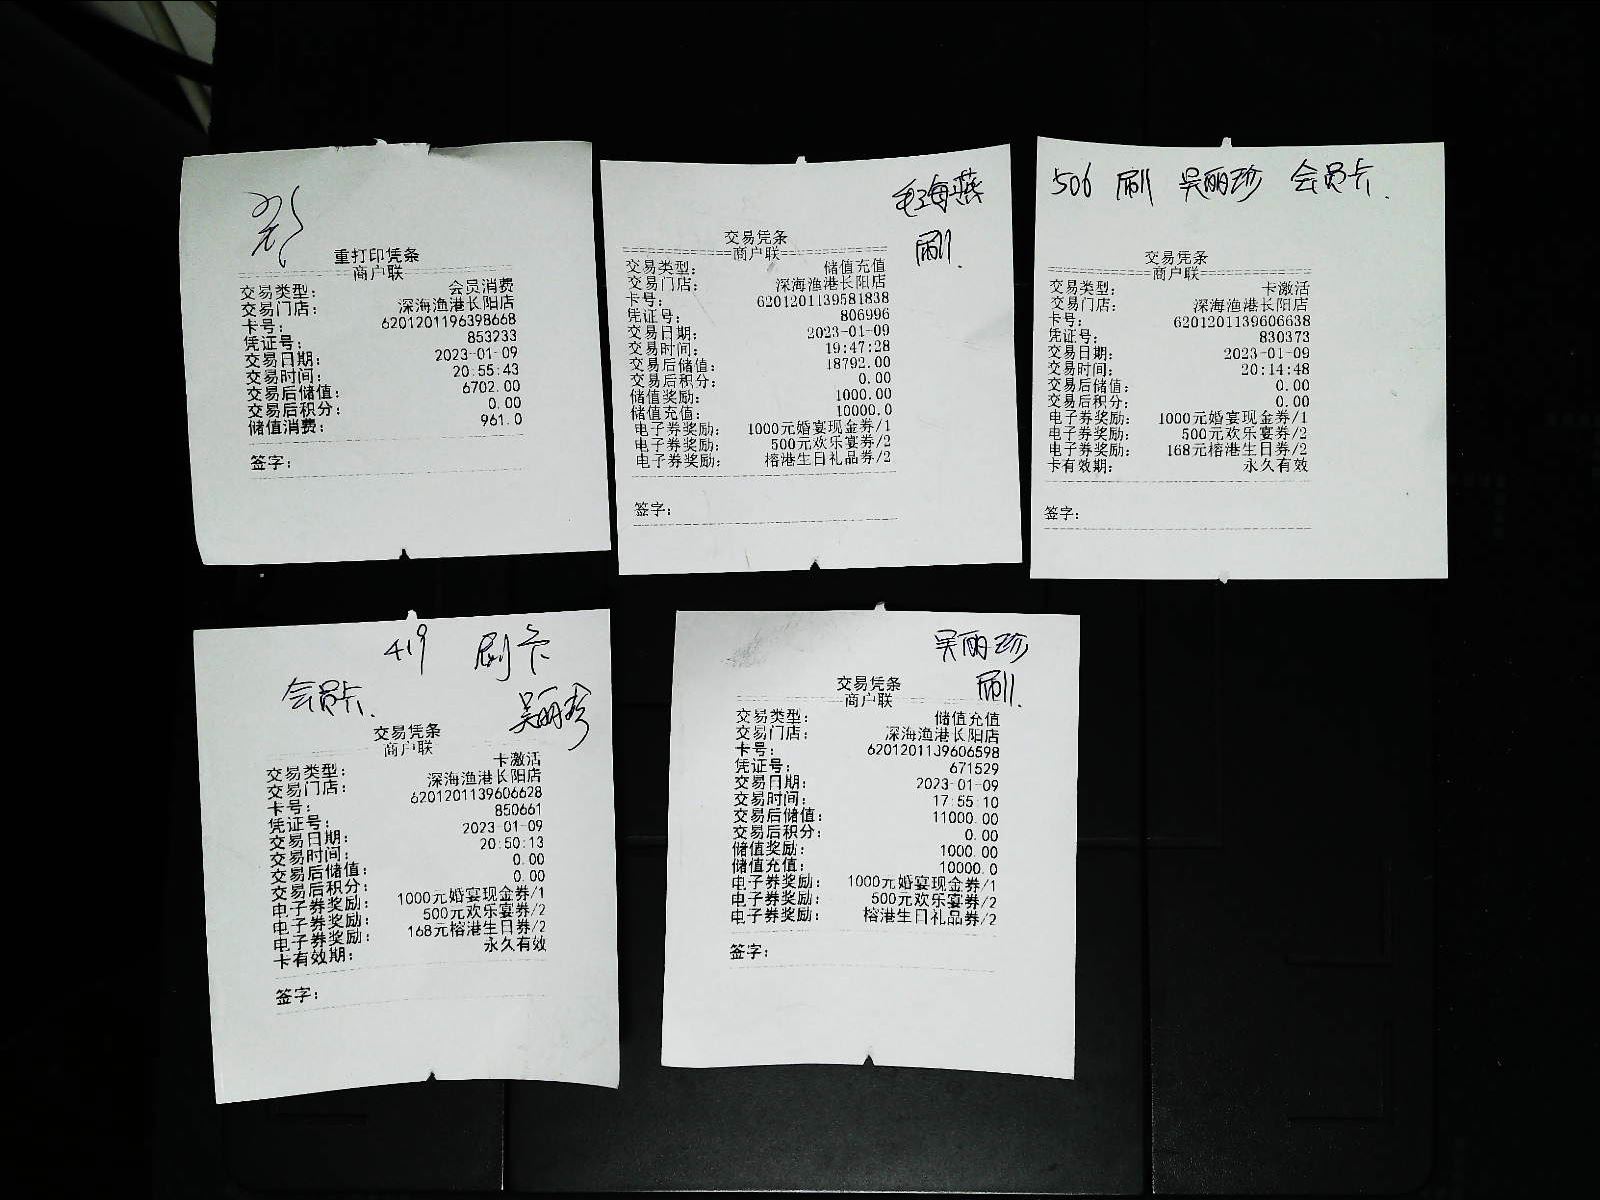 重打印凭条
商户联
交易类型： 会员消费
交易门店： 深海渔港长阳店
卡号： 6201201196398668
凭证号： 853233
交易日期： 2023-01-09
交易时间： 20:55:43
交易后储值： 6702.00
交易后积分： 0.00
储值消费： 961.0
签字：
毛海燕
刷.
交易凭条
商户联
交易类型： 储值充值
交易门店： 深海渔港长阳店
卡号： 6201201139581838
凭证号： 806996
交易日期： 2023-01-09
交易时间： 19:47:28
交易后储值： 18792.00
交易后积分： 0.00
储值奖励： 1000.00
储值充值： 10000.0
电子券奖励： 1000元婚宴现金券/1
电子券奖励： 500元欢乐宴券/2
电子券奖励： 榕港生日礼品券/2
签字：
506 刷 吴丽珍 会员卡.
交易凭条
商户联
交易类型： 卡激活
交易门店： 深海渔港长阳店
卡号： 6201201139606638
凭证号： 830373
交易日期： 2023-01-09
交易时间： 20:14:48
交易后储值： 0.00
交易后积分： 0.00
电子券奖励： 1000元婚宴现金券/1
电子券奖励： 500元欢乐宴券/2
电子券奖励： 168元榕港生日券/2
卡有效期： 永久有效
签字：
419 刷卡
会员卡.
吴丽珍
交易凭条
商户联
交易类型： 卡激活
交易门店： 深海渔港长阳店
卡号： 6201201139606628
凭证号： 850661
交易日期： 2023-01-09
交易时间： 20:50:13
交易后储值： 0.00
交易后积分： 0.00
电子券奖励： 1000元婚宴现金券/1
电子券奖励： 500元欢乐宴券/2
电子券奖励： 168元榕港生日券/2
卡有效期： 永久有效
签字：
吴丽珍
刷.
交易凭条
商户联
交易类型： 储值充值
交易门店： 深海渔港长阳店
卡号： 6201201139606598
凭证号： 671529
交易日期： 2023-01-09
交易时间： 17:55:10
交易后储值： 11000.00
交易后积分： 0.00
储值奖励： 1000.00
储值充值： 10000.0
电子券奖励： 1000元婚宴现金券/1
电子券奖励： 500元欢乐宴券/2
电子券奖励： 榕港生日礼品券/2
签字：